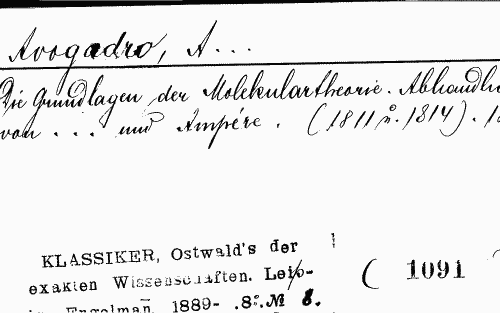 Avogadro, A...
Die Grundlagen der Molekulartheorie. Abhandlu
von ... und Ampére. (1811 u. 1814).
KLASSIKER, Ostwald's der
exakten Wissenschaften. Leip-
Engelman̄. 1889- .8º. № 8.
( 1091